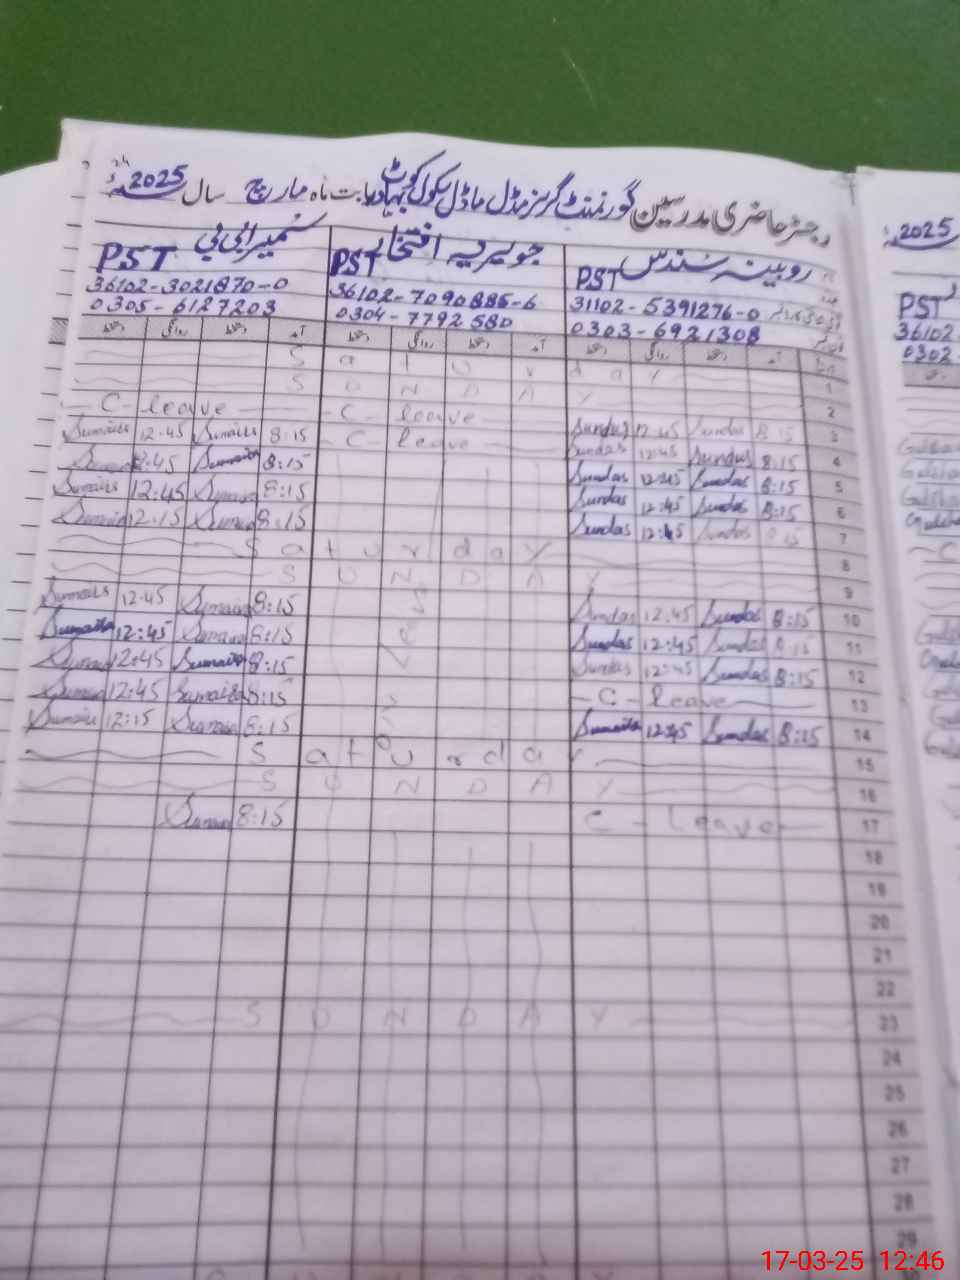 رجسٹر حاضری مدرسین گورنمنٹ گرلز مڈل ماڈل سکول کوٹ بہادر بابت ماہ مارچ سال 2025ء
2025
روبینہ سندس PST
جویریہ افتخار PST
سمیرا بی بی PST
PST
31102-5391276-0
36102-7090885-6
36102-3021870-0
36102-
0303-6921308
0304-7792580
0305-6127203
0302-
Saturday 1
SUNDAY 2
C-leave C-leave Sundus 12:45 Sundas 8:15 3
Sumaira 12:45 Sumaira 8:15 C-leave Sundas 12:45 Sundus 8:15 4
Sumaira 12:45 Sumaira 8:15 Sundas 12:45 Sundas 8:15 5
Sumaira 12:45 Sumaira 8:15 Sundas 12:45 Sundas 8:15 6
Sumaira 12:15 Sumaira 8:15 Sundas 12:45 Sundas 8:15 7
Saturday 8
SUNDAY 9
Sumaira 12:45 Sumaira 8:15 Sundas 12:45 Sundas 8:15 10
Sumaira 12:45 Sumaira 8:15 Sundas 12:45 Sundas 8:15 11
Sumaira 12:45 Sumaira 8:15 Sundas 12:45 Sundas 8:15 12
Sumaira 12:45 Sumaira 8:15 -C-leave 13
Sumaira 12:15 Sumaira 8:15 Sumaila 12:45 Sundas 8:15 14
Saturday 15
SUNDAY 16
Sumaira 8:15 C-leave 17
18
19
20
21
22
SUNDAY 23
24
25
26
27
28
29
17-03-25 12:46